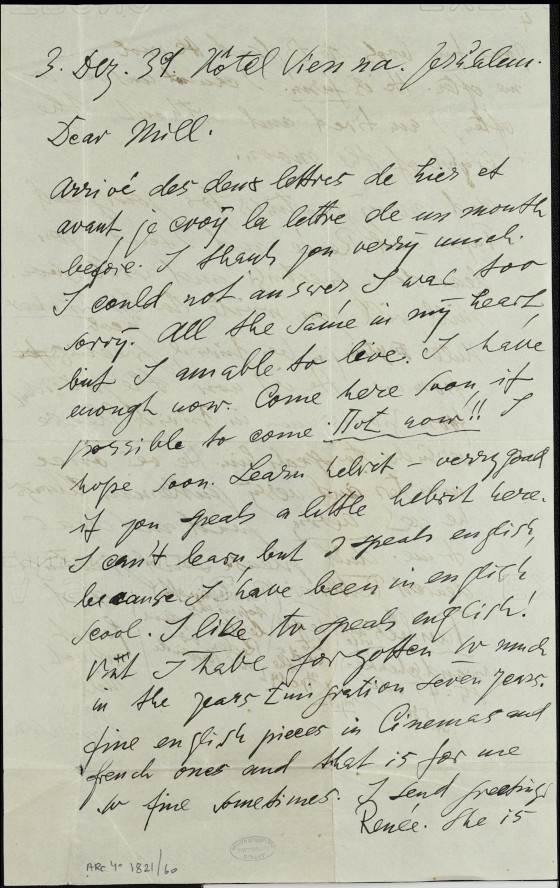 3. Dez. 39. Hôtel Vienna. Jerusalem.
Dear Mill.
Arrivé des deux lettres de hier et
avant, je croÿ la lettre de un month
before. I thank you verry much.
I could not answer I was too
sorry. All the same in my heart
but I am able to live. I have
enough now. Come here soon, if
possible to come. Not now!! I
hope soon. Learn hebrit – verry good
if you speak a little hebrit here.
I can't learn but I speak english,
because I have been in english
scool. I like to speak english!
But I have forgotten so much
in the years Emigration seven years.
fine english pieces in Cinemas and
french ones and that is for me
so fine sometimes. I send greetings
Renee. She is
ARC 4° 1821/60